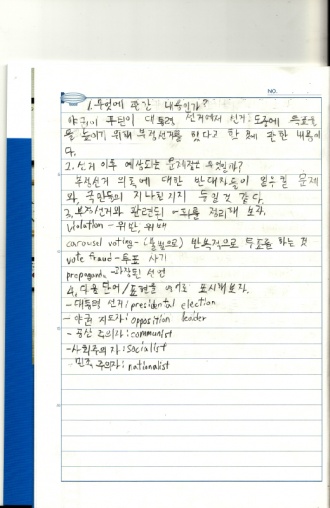 NO.
1. 무엇에 관한 내용인가?
푸틴이 대통령 선거에서 선거 도중에 득표율
을 높이기 위해 부정선거를 했다고 한 것에 관한 내용이
다.
2. 선거 이후 예상되는 문제점은 무엇일까?
부정선거 의혹에 대한 반대자들이 일으킬 문제
와, 국민들의 지나친 지지 것 같다.
3. 부정선거와 관련된 정리해 보자.
violation - 위반, 위배
carousel voting - (불법으로) 반복적으로 투표를 하는 것
vote fraud - 투표 사기
propaganda - 과장된 선전
4. 다음 단어/표현을 영어로 표시해보자.
- 대통령 선거: presidental election
- 야권 지도자: opposition leader
- 공산 주의자: communist
- 사회주의자: Socialist
- 민족 주의자: nationalist